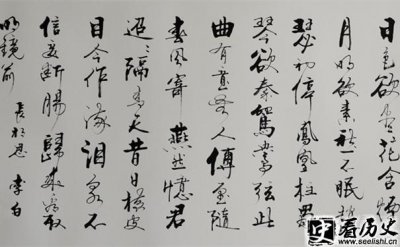 日色欲尽花含烟
月明欲素愁不眠赵
瑟初停鳳凰柱蜀
琴欲奏鸳鸯弦此
曲有意無人傳愿随
春風寄燕然憶君
迢々隔青天昔日横波
目今作流泪泉不
信妾断腸歸来看取
明鏡前
長相思 李白
看历史
www.seelishi.cn